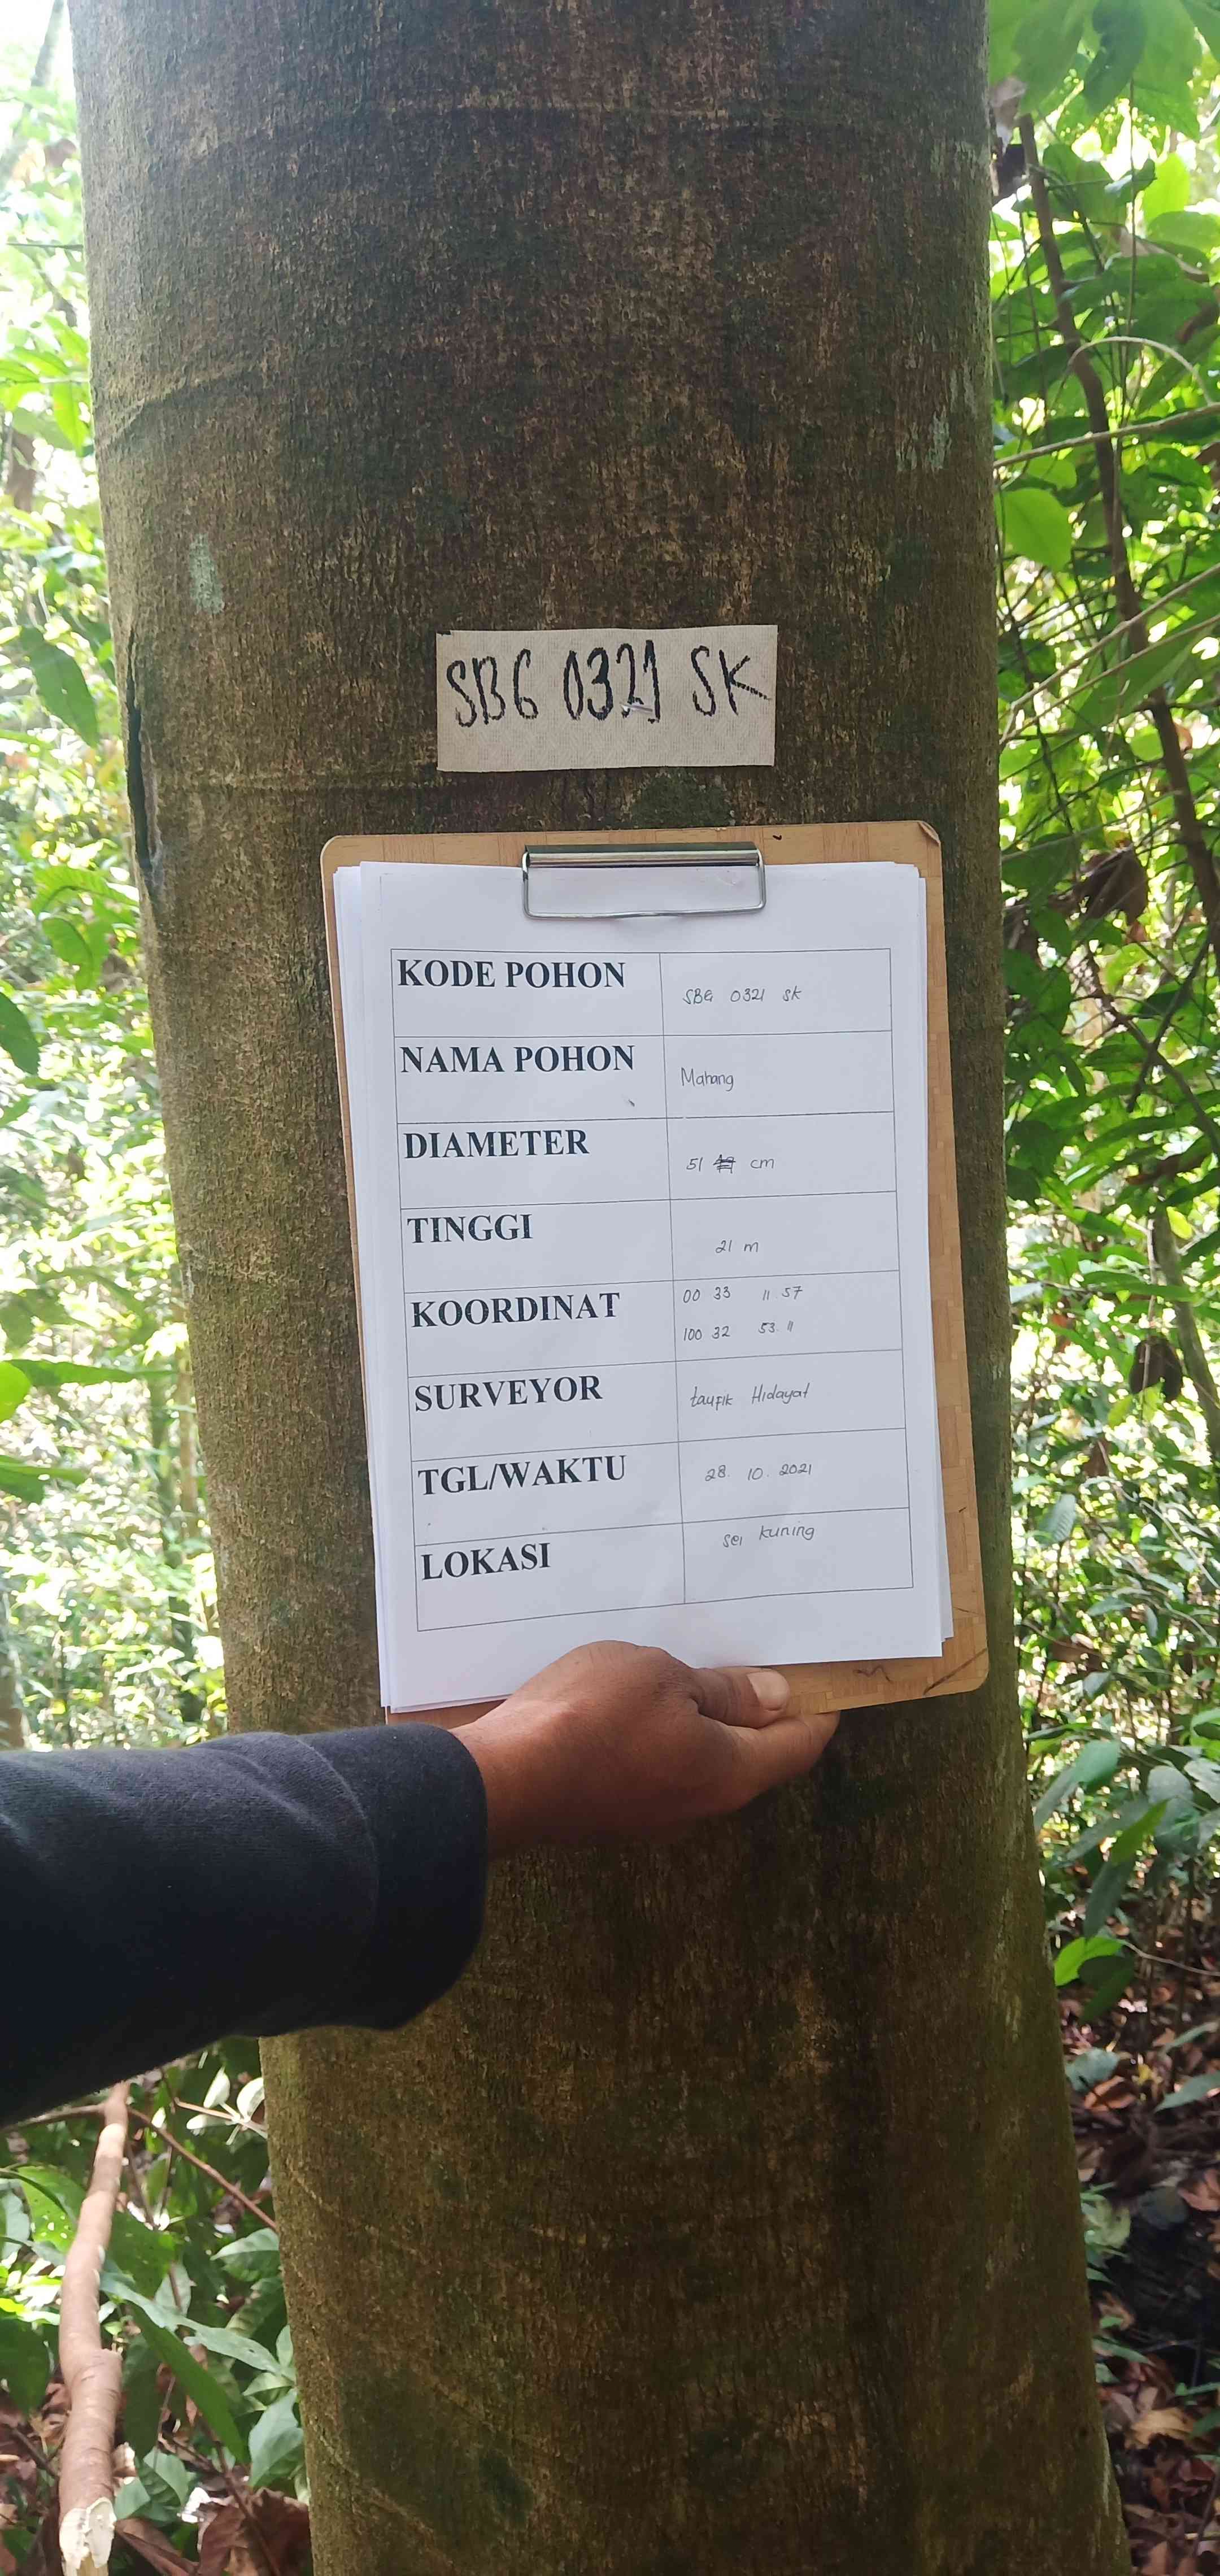 SBG 0321 SK
KODE POHON SBG 0321 SK
NAMA POHON Mahang
DIAMETER 51 cm
TINGGI 21 m
KOORDINAT 00 33 11 57
100 32 53. 11
SURVEYOR taufik Hidayat
TGL/WAKTU 28. 10. 2021
LOKASI sei kuning